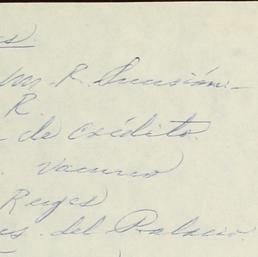 es
m. R. Sunsión.
R.
de crédito.
vacuno
Reyes
es. del Palacio